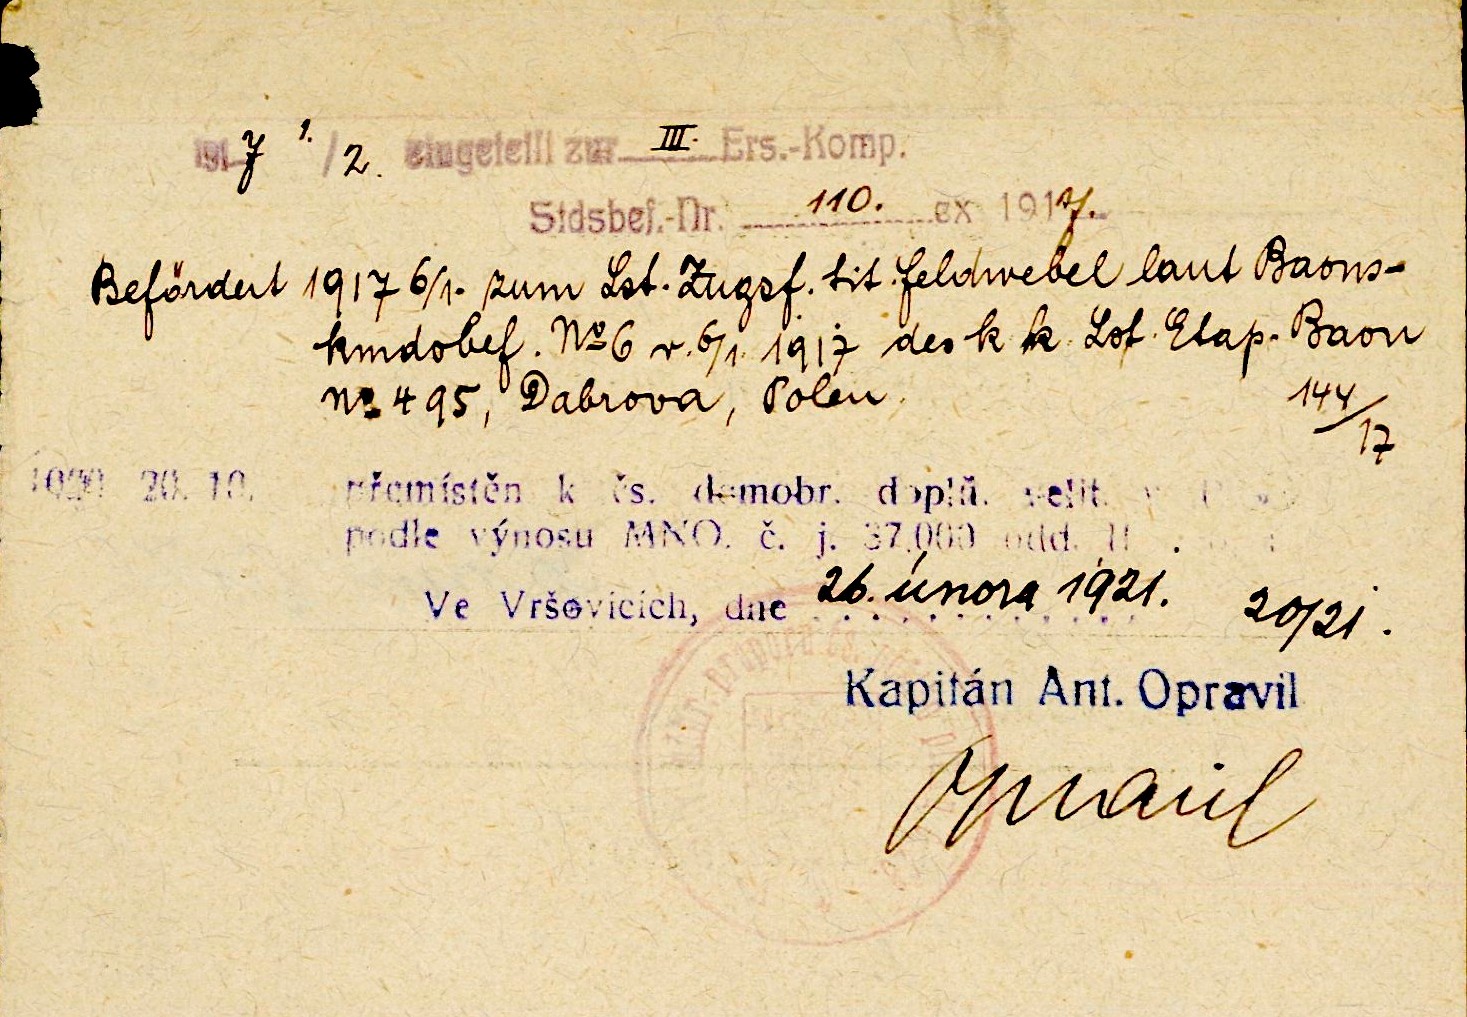 1917 1./2. eingeteilt zur III. Ers.-Komp.
Stdsbef.-Nr. 110. ex 1917.
Befördert 1917 6/1. zum Lst. Zugsf. tit. Feldwebel laut Baons-
kmdobef. No 6 v. 6/1. 1917 des k k. Lst. Etap. Baon
No 495, Dabrova, Polen.
144/17
20. 10. přemístěn k čs. demobr. doplň. velit.
podle výnosu MNO. č. j. 37.000 odd. II
Ve Vršovicích, dne 26. února 1921. 20/21.
Kapitán Ant. Opravil
Opravil